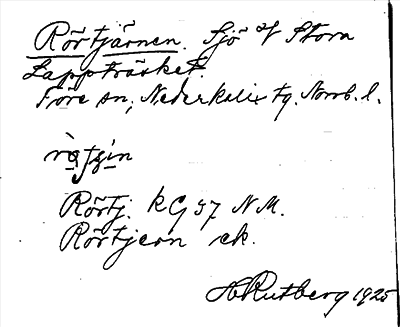 Rörtjärnen. Sjö v/ Stora
Lappträsket.
Före sn, Nederkalix tg. Norrb. l.
Rörtj. KG 57 NM.
Rörtjern ek.
H Rutberg 1925